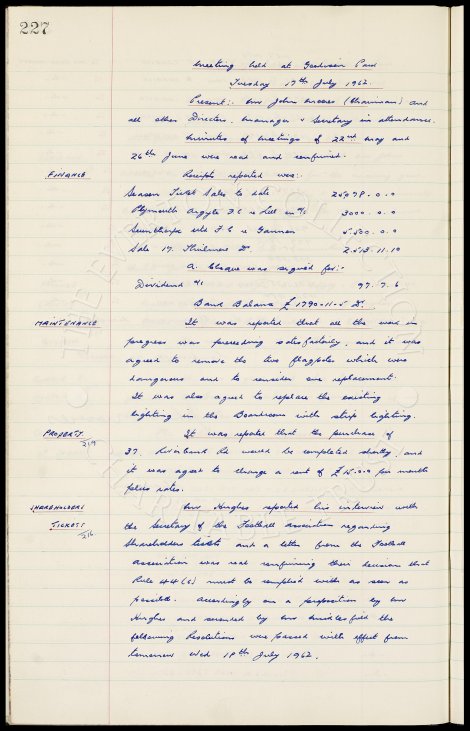 227
Meeting held at Goodison Park
Tuesday 17th July 1962.
Present:- Mr John Moores (Chairman) and
all other Directors. Manager & Secretary in attendance.
Minutes of Meetings of 22nd May and
26th June were read and confirmed.
FINANCE Receipts reported were:-
Season Ticket Sales to date 25098-0-0
Plymouth Argyle F.C. re a/c 3000-0-0
Scunthorpe Utd F.C. re Gannon 5,500-0-0
Sale 17. Thirlmere Dr 2513-11-10
A. Cheque was signed for:-
Dividend a/c 97-7-6
Bank Balance £1790-11-5 Dr.
MAINTENANCE It was reported that all the work in
progress was proceeding satisfactorily, and it was
agreed to remove the two flagpoles which were
dangerous and to consider one replacement.
It was also agreed to replace the existing
lighting in the Boardroom with strip lighting.
PROPERTY 219 It was reported that the purchase of
37. Riverbank Rd would be completed shortly, and
it was agreed to charge a rent of £15.0.0 per month
plus rates.
SHAREHOLDERS Mr Hughes reported his interview with
TICKETS 216 the Secretary of the Football Association regarding
Shareholders tickets and a letter from the Football
Association was read confirming their decision that
Rule 44 must be complied with as soon as
possible. Accordingly on a proposition by Mr
Hughes and seconded by Mr the
following Resolutions were passed with effect from
tomorrow Wed 18th July 1962.